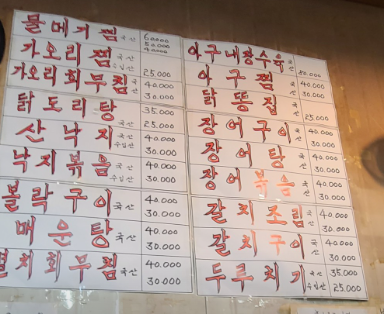 물메기찜 국산 60.000
50.000
40.000
가오리찜
가오리회무침 국산 25.000
40.000
30.000
닭도리탕 35.000
25.000
산낙지 국산 수입산 40.000
30.000
낙지볶음 국산 수입산 40.000
30.000
볼락구이 국산 40.000
30.000
매운탕 국산 40.000
30.000
멸치회무침 국산 40.000
30.000
아구내장수육
아구찜 40.000
30.000
닭똥집 25.000
장어구이 국산 40.000
30.000
장어탕 국산 40.000
30.000
장어볶음 국산 40.000
30.000
갈치조림 국산 40.000
30.000
갈치구이 국산 40.000
30.000
두루치기 국산 수입산 35.000
25.000